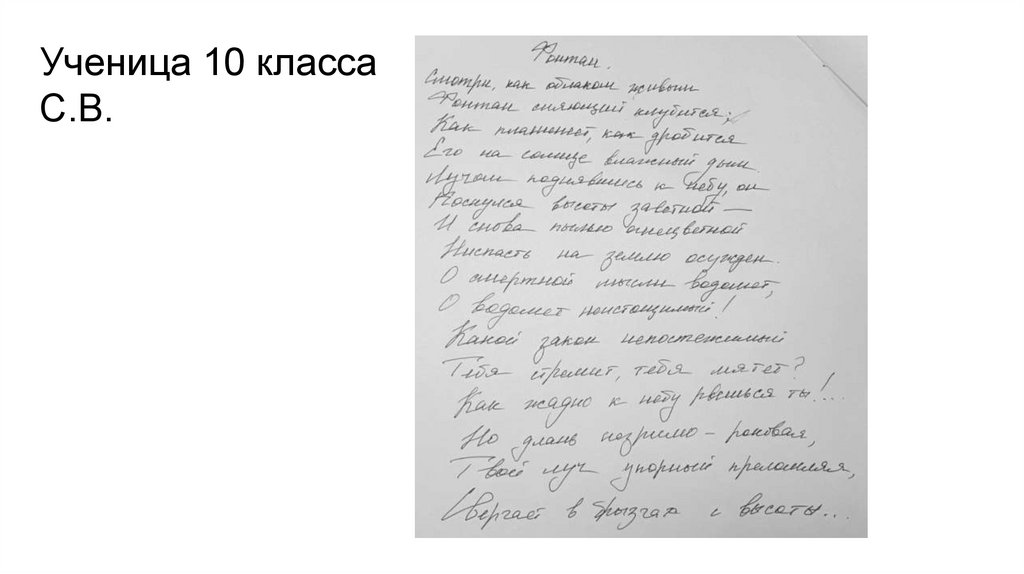 Ученица 10 класса
С.В.
Фонтан.
Смотри, как облаком живым
Фонтан сияющий клубится;
Как пламенеет, как дробится
Его на солнце влажный дым.
Лучом поднявшись к небу, он
Коснулся высоты заветной —
И снова пылью огнецветной
Ниспасть на землю осужден.
О смертной мысли водомет,
О водомет неистощимый!
Какой закон непостежимый
Тебя стремит, тебя мятет?
Как жадно к небу рвешься ты!...
Но длань незримо - роковая,
Твой луч упорный преломляя,
Свергает в брызгах с высоты...